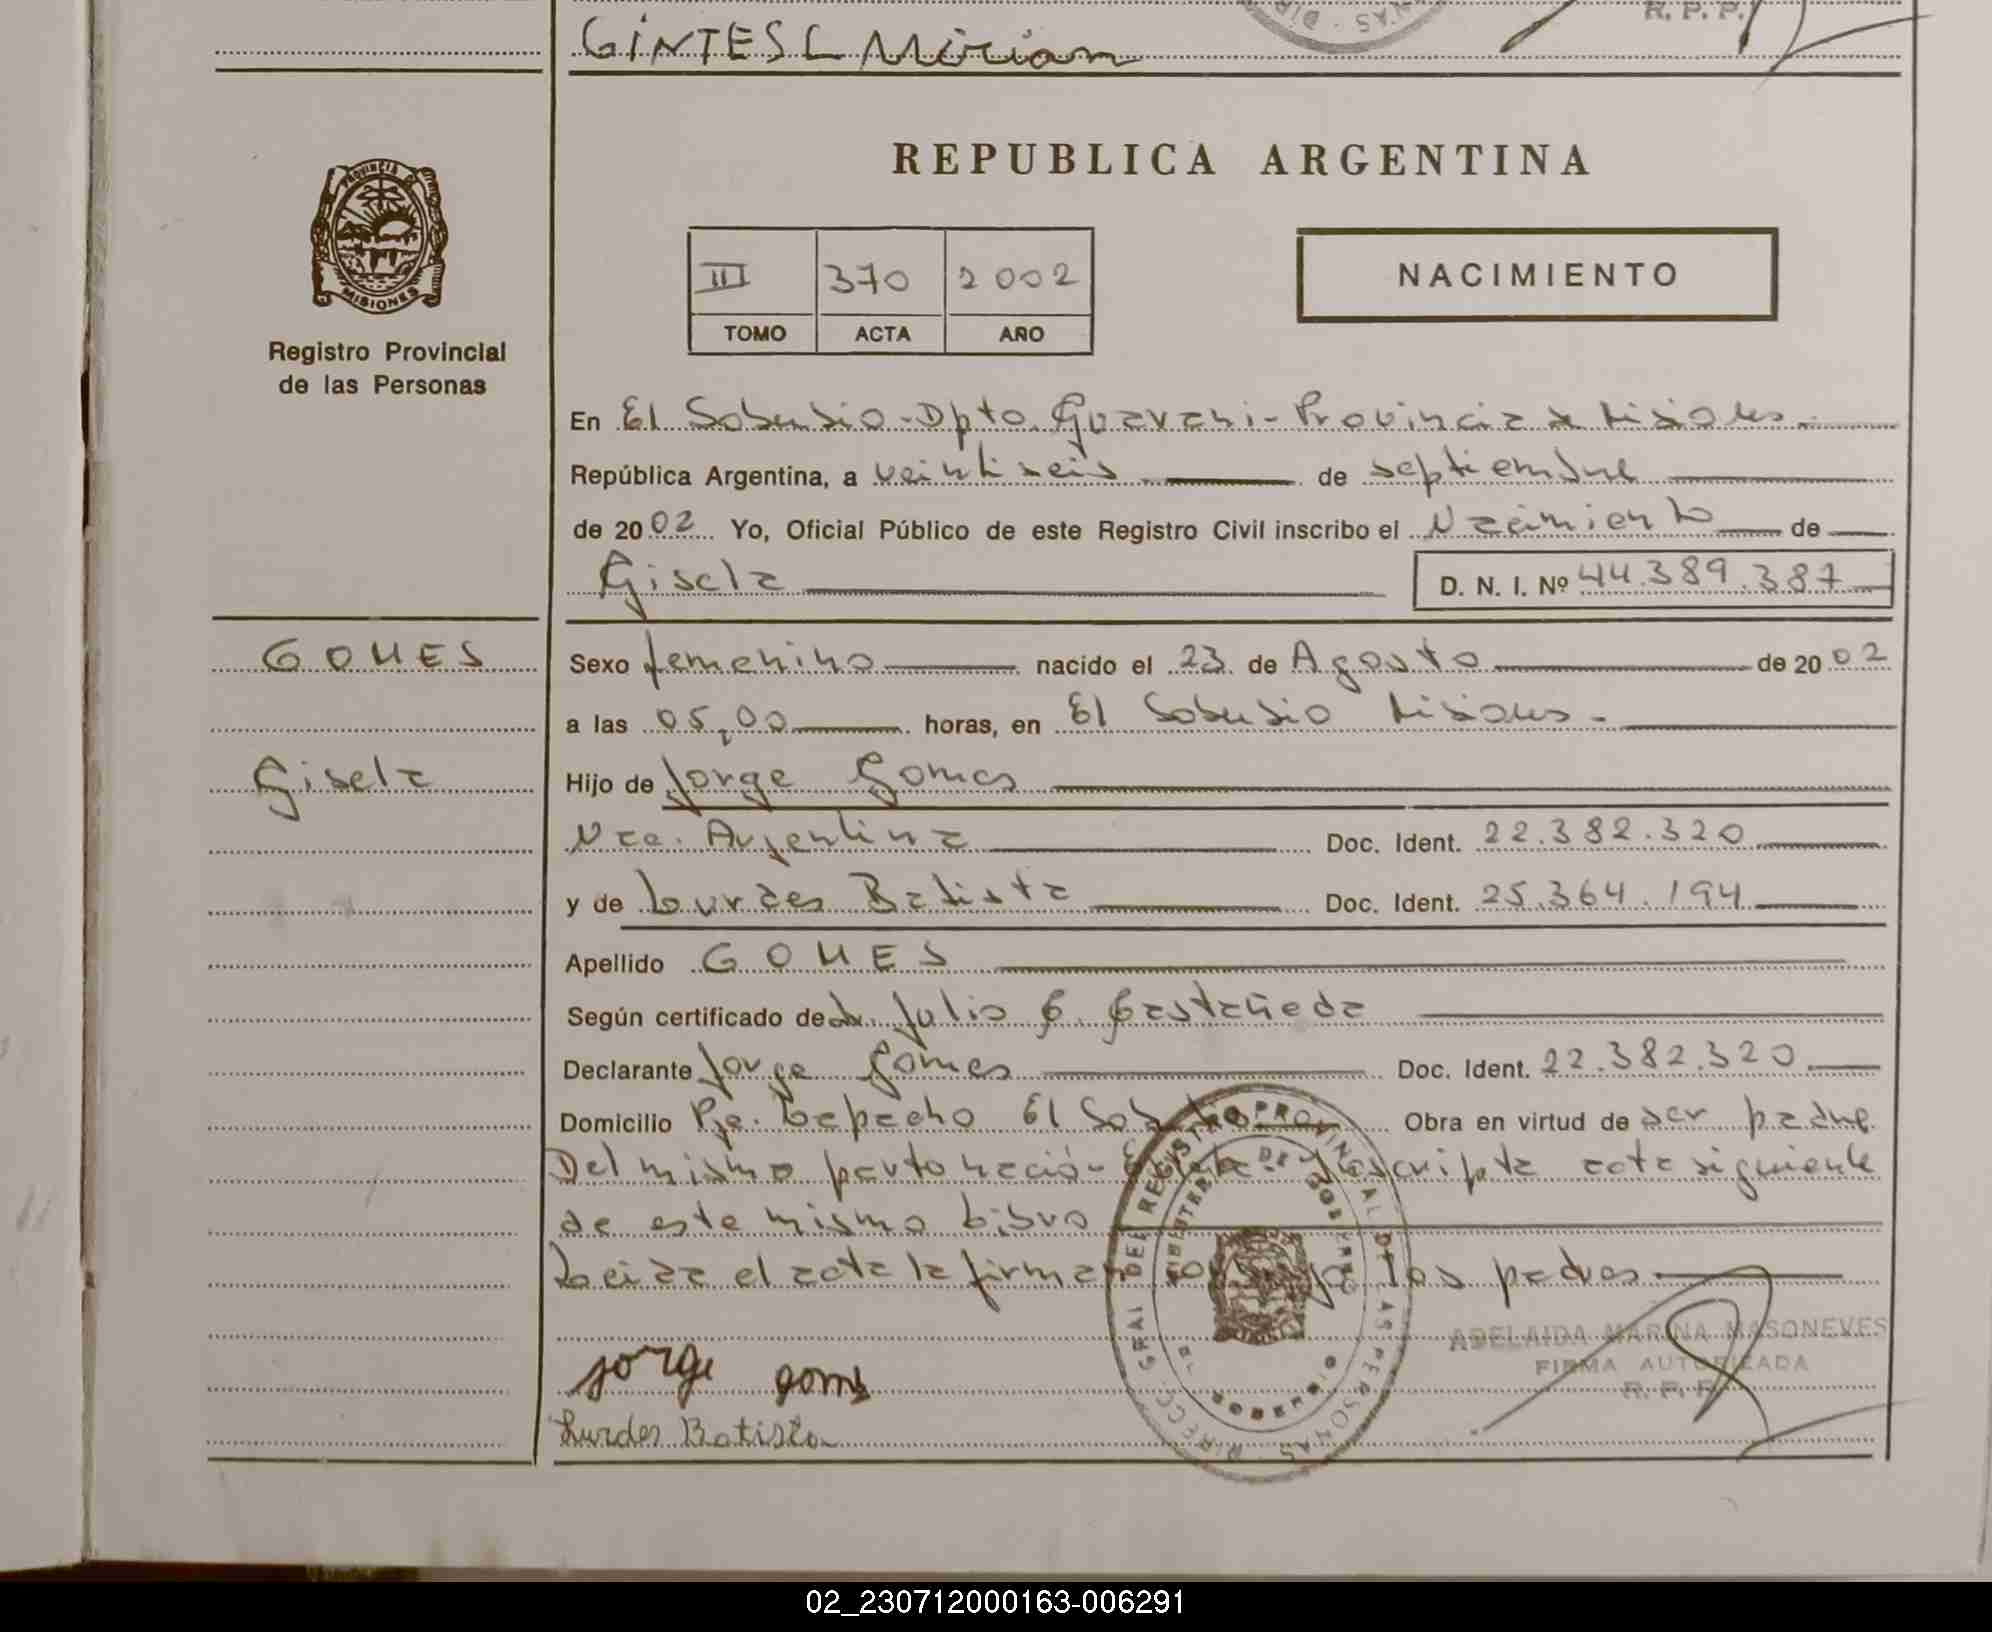 GINTESL Mirian
R. P. P.
REPUBLICA ARGENTINA
PROVINCIA DE
MISIONES
Registro Provincial
de las Personas
III 370 2002
TOMO ACTA AÑO
NACIMIENTO
En El Soberbio - Dpto. Guarani - Provincia de Misiones.
República Argentina, a veintiseis de septiembre
de 2002 Yo, Oficial Público de este Registro Civil inscribo el Nacimiento de
Gisela D. N. I. Nº 44.389.387
GOMES
Gisela
Sexo femenino nacido el 23 de Agosto de 2002
a las 05,00 horas, en El Soberbio Misiones -
Hijo de Jorge Gomes
Nac. Argentina Doc. Ident. 22.382.320
y de Lurdes Batista Doc. Ident. 25.364.194
Apellido GOMES
Según certificado de Dr. Julio C. Castañeda
Declarante Jorge Gomes Doc. Ident. 22.382.320
Domicilio Pje. Lapacho El Soberbio Obra en virtud de ser padre
Del mismo parto nació inscripta acta siguiente
de este mismo Libro
Leida el acta la firman los padres
jorge goms
Lurdes Batista
DIRECC. GRAL DEL REGISTRO PROVINCIAL DE LAS PERSONAS
ADELAIDA MARINA MASONEVES
FIRMA AUTORIZADA
R. P. P.
02_230712000163-006291